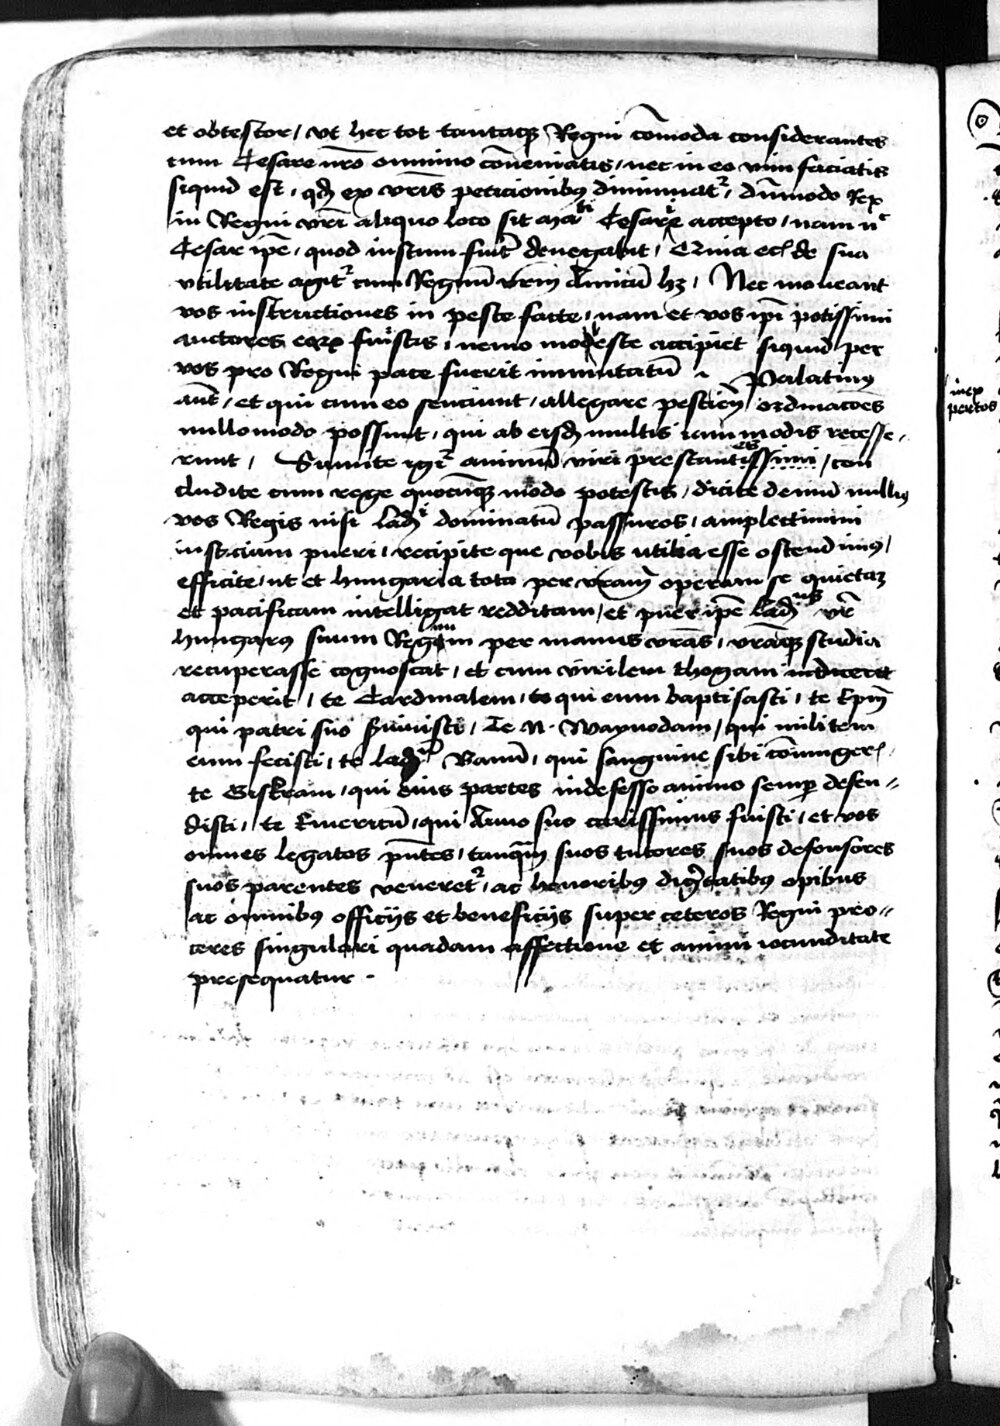 et obtestor / vt hec tot tantaq₃ Regni cōmoda considerantes
cum Cesare nr̄o omnino cōveniatis / nec in eo vim faciatis
siquid est / qd̄ ex vr̄is peticionibꝯ diminuat᷑ / dūmodo Rex
in Regni vr̄i aliquo loco sit Cesare accepto / nam n
Cesar ip̄e / quod iustum fu͛it denegabit / Quia et de sua
vtilitate agit᷑ cum Regnū vr̄m Amicū h₃ / Nec moueant
vos instructiones in peste facte / nam et vos ip̄i potissimi
auctores eoꝝ fuistis / nemo moleste accipiet siquid per
vos pro Regni pace fuerit immutatū ~ Palatinꝯ
aūt / et qui cum eo senciunt / allegare pestien̄ ordinacōes
nullomodo possunt / qui ab eisd̄ multis iam modis recesse /
runt / Sumite igr̄ animū viri prestantissimi / con
cludite cum rege quocūq₃ modo potestis / dicite demū nulliꝯ
vos Regis nisi ladi dominatū passuros / amplectimini
iusticiam pueri / recipite que vobis vtilia esse ostendimꝯ /
efficite / ut et hungaria tota per vram̄ operam se quietaꝫ
et pacificam intelligat redditam / et puer ip̄e ladiꝰ vr̄
hungarꝯ suum Regnum per manus vras / vraq₃ studia
recuperasse cognoscat / et cum virilem thogam induerit
acceperit / te Cardinalem / te qui eum baptisasti / te Ep̄m
qui patri suo s͛uiuisti / Te N. Wayuodam / qui militem
eum fecisti / te ladi Banū / qui sanguine sibi cōiunger
te Giskram / qui eius partes indefesso animo semꝑ defen //
disti / te Emericū / qui Auo suo carissimus fuisti / et vos
omnes legatos pn̄tes / tanq̄m suos tutores suos defensores
suos parentes veneret᷑ / ac honoribꝯ dig̅tatibꝯ opibus
ac omnibꝯ officijs et beneficijs super ceteros Regni pro //
ceres singulari quadam affectione et animi iocunditate
prosequatur .
inex
pertos